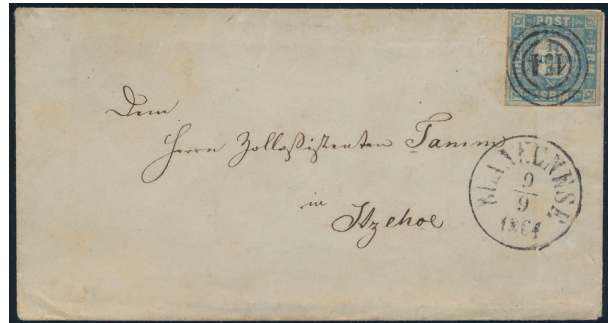 POST
FRM
Dem
Herrn Zollassistenten Tamm
in
Itzehoe
BLANKENESE
9
9
1864